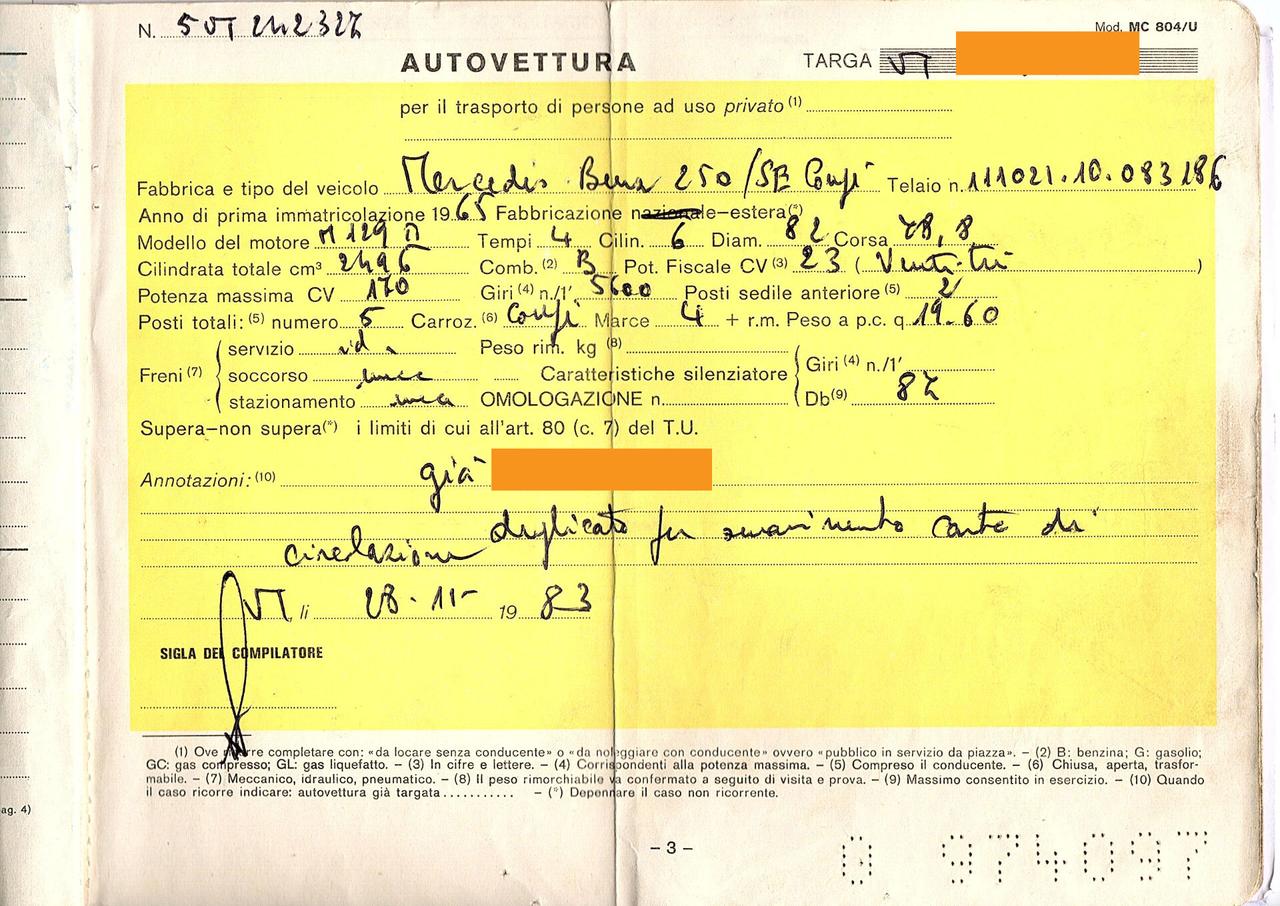 N. 5 VT 242327
Mod. MC 804/U
AUTOVETTURA TARGA VT
per il trasporto di persone ad uso privato (1)
Fabbrica e tipo del veicolo Mercedes Benz 250/SE Coupé Telaio n. 111021.10.083186
Anno di prima immatricolazione 1965 Fabbricazione nazionale-estera(*)
Modello del motore M 129 II Tempi 4 Cilin. 6 Diam. 82 Corsa 78,8
Cilindrata totale cm³ 2496 Comb. (2) B Pot. Fiscale CV (3) 23 ( Venti-tré )
Potenza massima CV 170 Giri (4) n./1' 5600 Posti sedile anteriore (5) 2
Posti totali: (5) numero 5 Carroz. (6) Coupé Marce 4 + r.m. Peso a p.c. q. 19.60
servizio id. Peso rim. kg (8)
Freni (7) soccorso mecc Caratteristiche silenziatore Giri (4) n./1'
stazionamento mecc OMOLOGAZIONE n. Db(9) 82
Supera-non supera(*) i limiti di cui all'art. 80 (c. 7) del T.U.
Annotazioni: (10) già
duplicato per smarrimento carta di
circolazione
VT, li 28-11- 19 83
SIGLA DEL COMPILATORE
(1) Ove occorre completare con: «da locare senza conducente» o «da noleggiare con conducente» ovvero «pubblico in servizio da piazza». – (2) B: benzina; G: gasolio;
GC: gas compresso; GL: gas liquefatto. – (3) In cifre e lettere. – (4) Corrispondenti alla potenza massima. – (5) Compreso il conducente. – (6) Chiusa, aperta, trasfor-
mabile. – (7) Meccanico, idraulico, pneumatico. – (8) Il peso rimorchiabile va confermato a seguito di visita e prova. – (9) Massimo consentito in esercizio. – (10) Quando
il caso ricorre indicare: autovettura già targata .......... – (*) Depennare il caso non ricorrente.
ag. 4)
– 3 –
0 974097